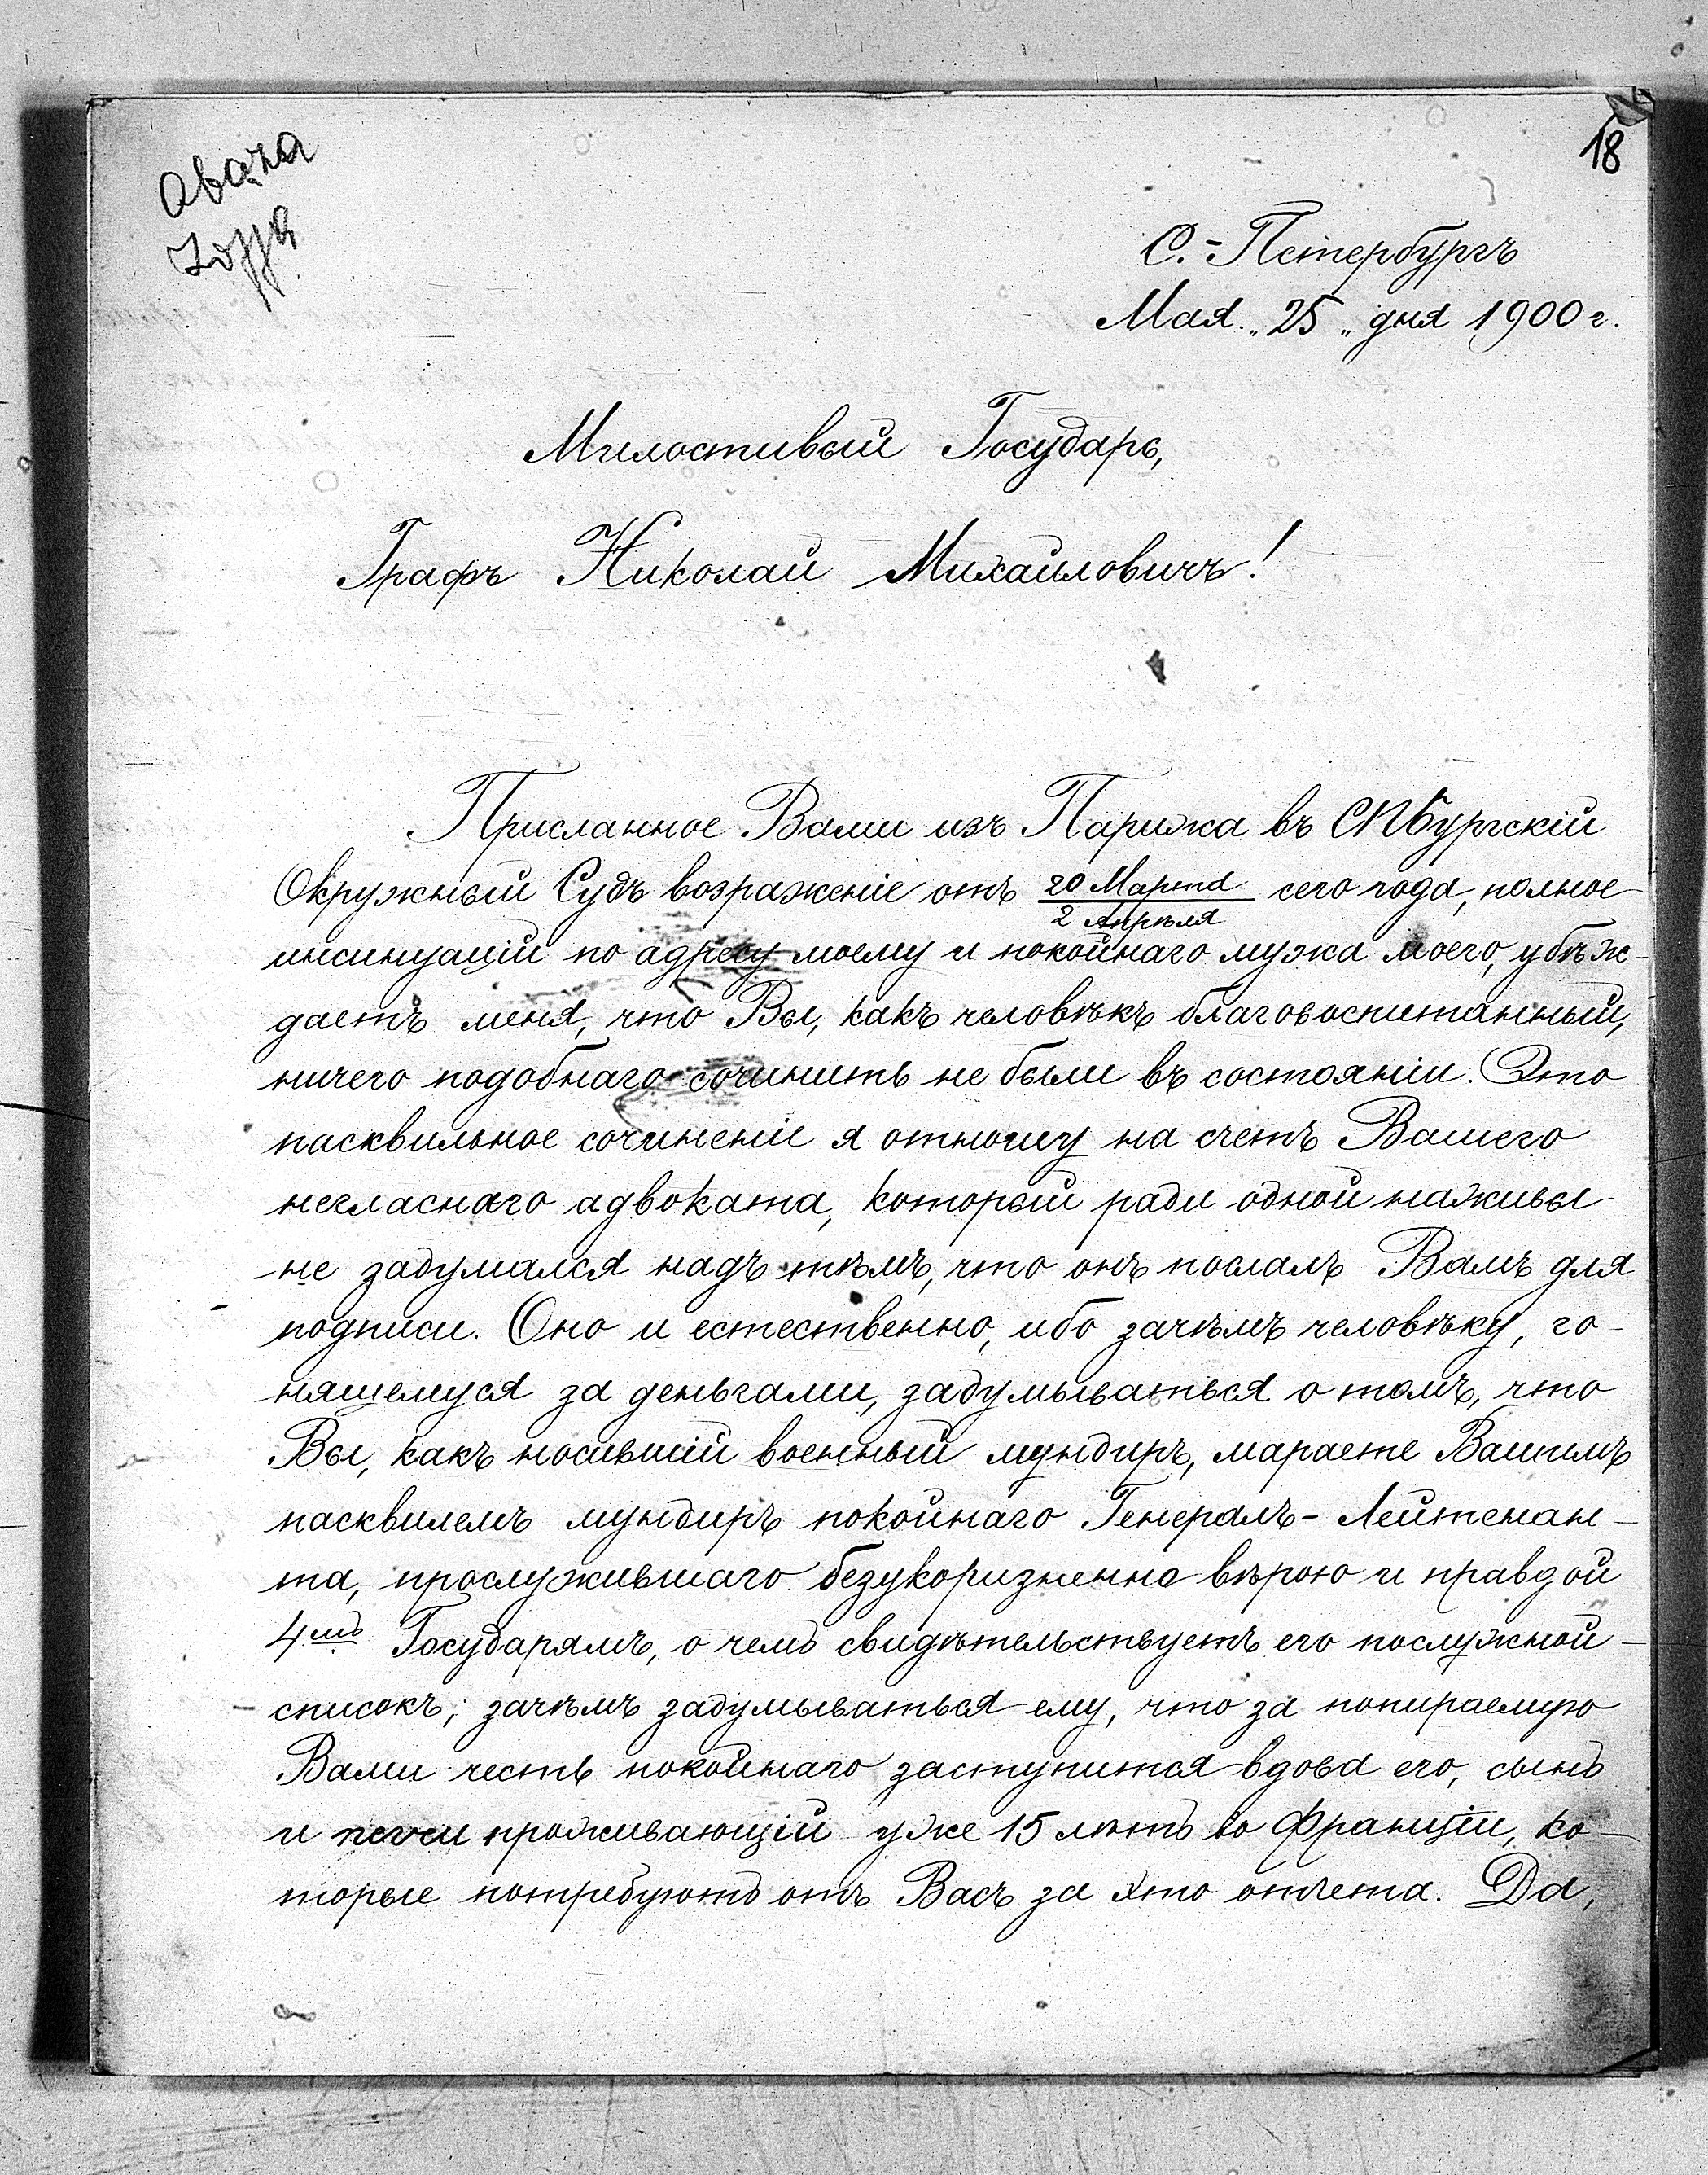 18
С.-Петербургъ
Мая „25„ дня 1900 г.
Милостивый Государь,
Графъ Николай Михайловичъ!
Присланное Вами изъ Парижа въ СПБургскій
Окружный Судъ возраженіе отъ 20 Марта / 2 Апрѣля сего года, полное
инсинуацій по адресу моему и покойнаго мужа моего, убѣж-
даетъ меня, что Вы, какъ человѣкъ благовоспитанный,
ничего подобнаго сочинить не были въ состояніи. Это
пасквильное сочиненіе я отношу на счетъ Вашего
негласнаго адвоката, который ради одной наживы
не задумался надъ тѣмъ, что онъ послалъ Вамъ для
подписи. Оно и естественно, ибо зачѣмъ человѣку, го-
няшемуся за деньгами, задумываться о томъ, что
Вы, какъ носившій военный мундиръ, мараете Вашимъ
пасквилемъ мундиръ покойнаго Генералъ-Лейтенан-
та, прослужившаго безукоризненно вѣрою и правдой
4мъ Государямъ, о чемъ свидѣтельствуетъ его послужной
списокъ; зачѣмъ задумываться ему, что за попираемую
Вами честь покойнаго заступится вдова его, сынъ
и проживающій уже 15 лѣтъ во Франціи, ко-
торые потребуютъ отъ Васъ за это отчета. Да,